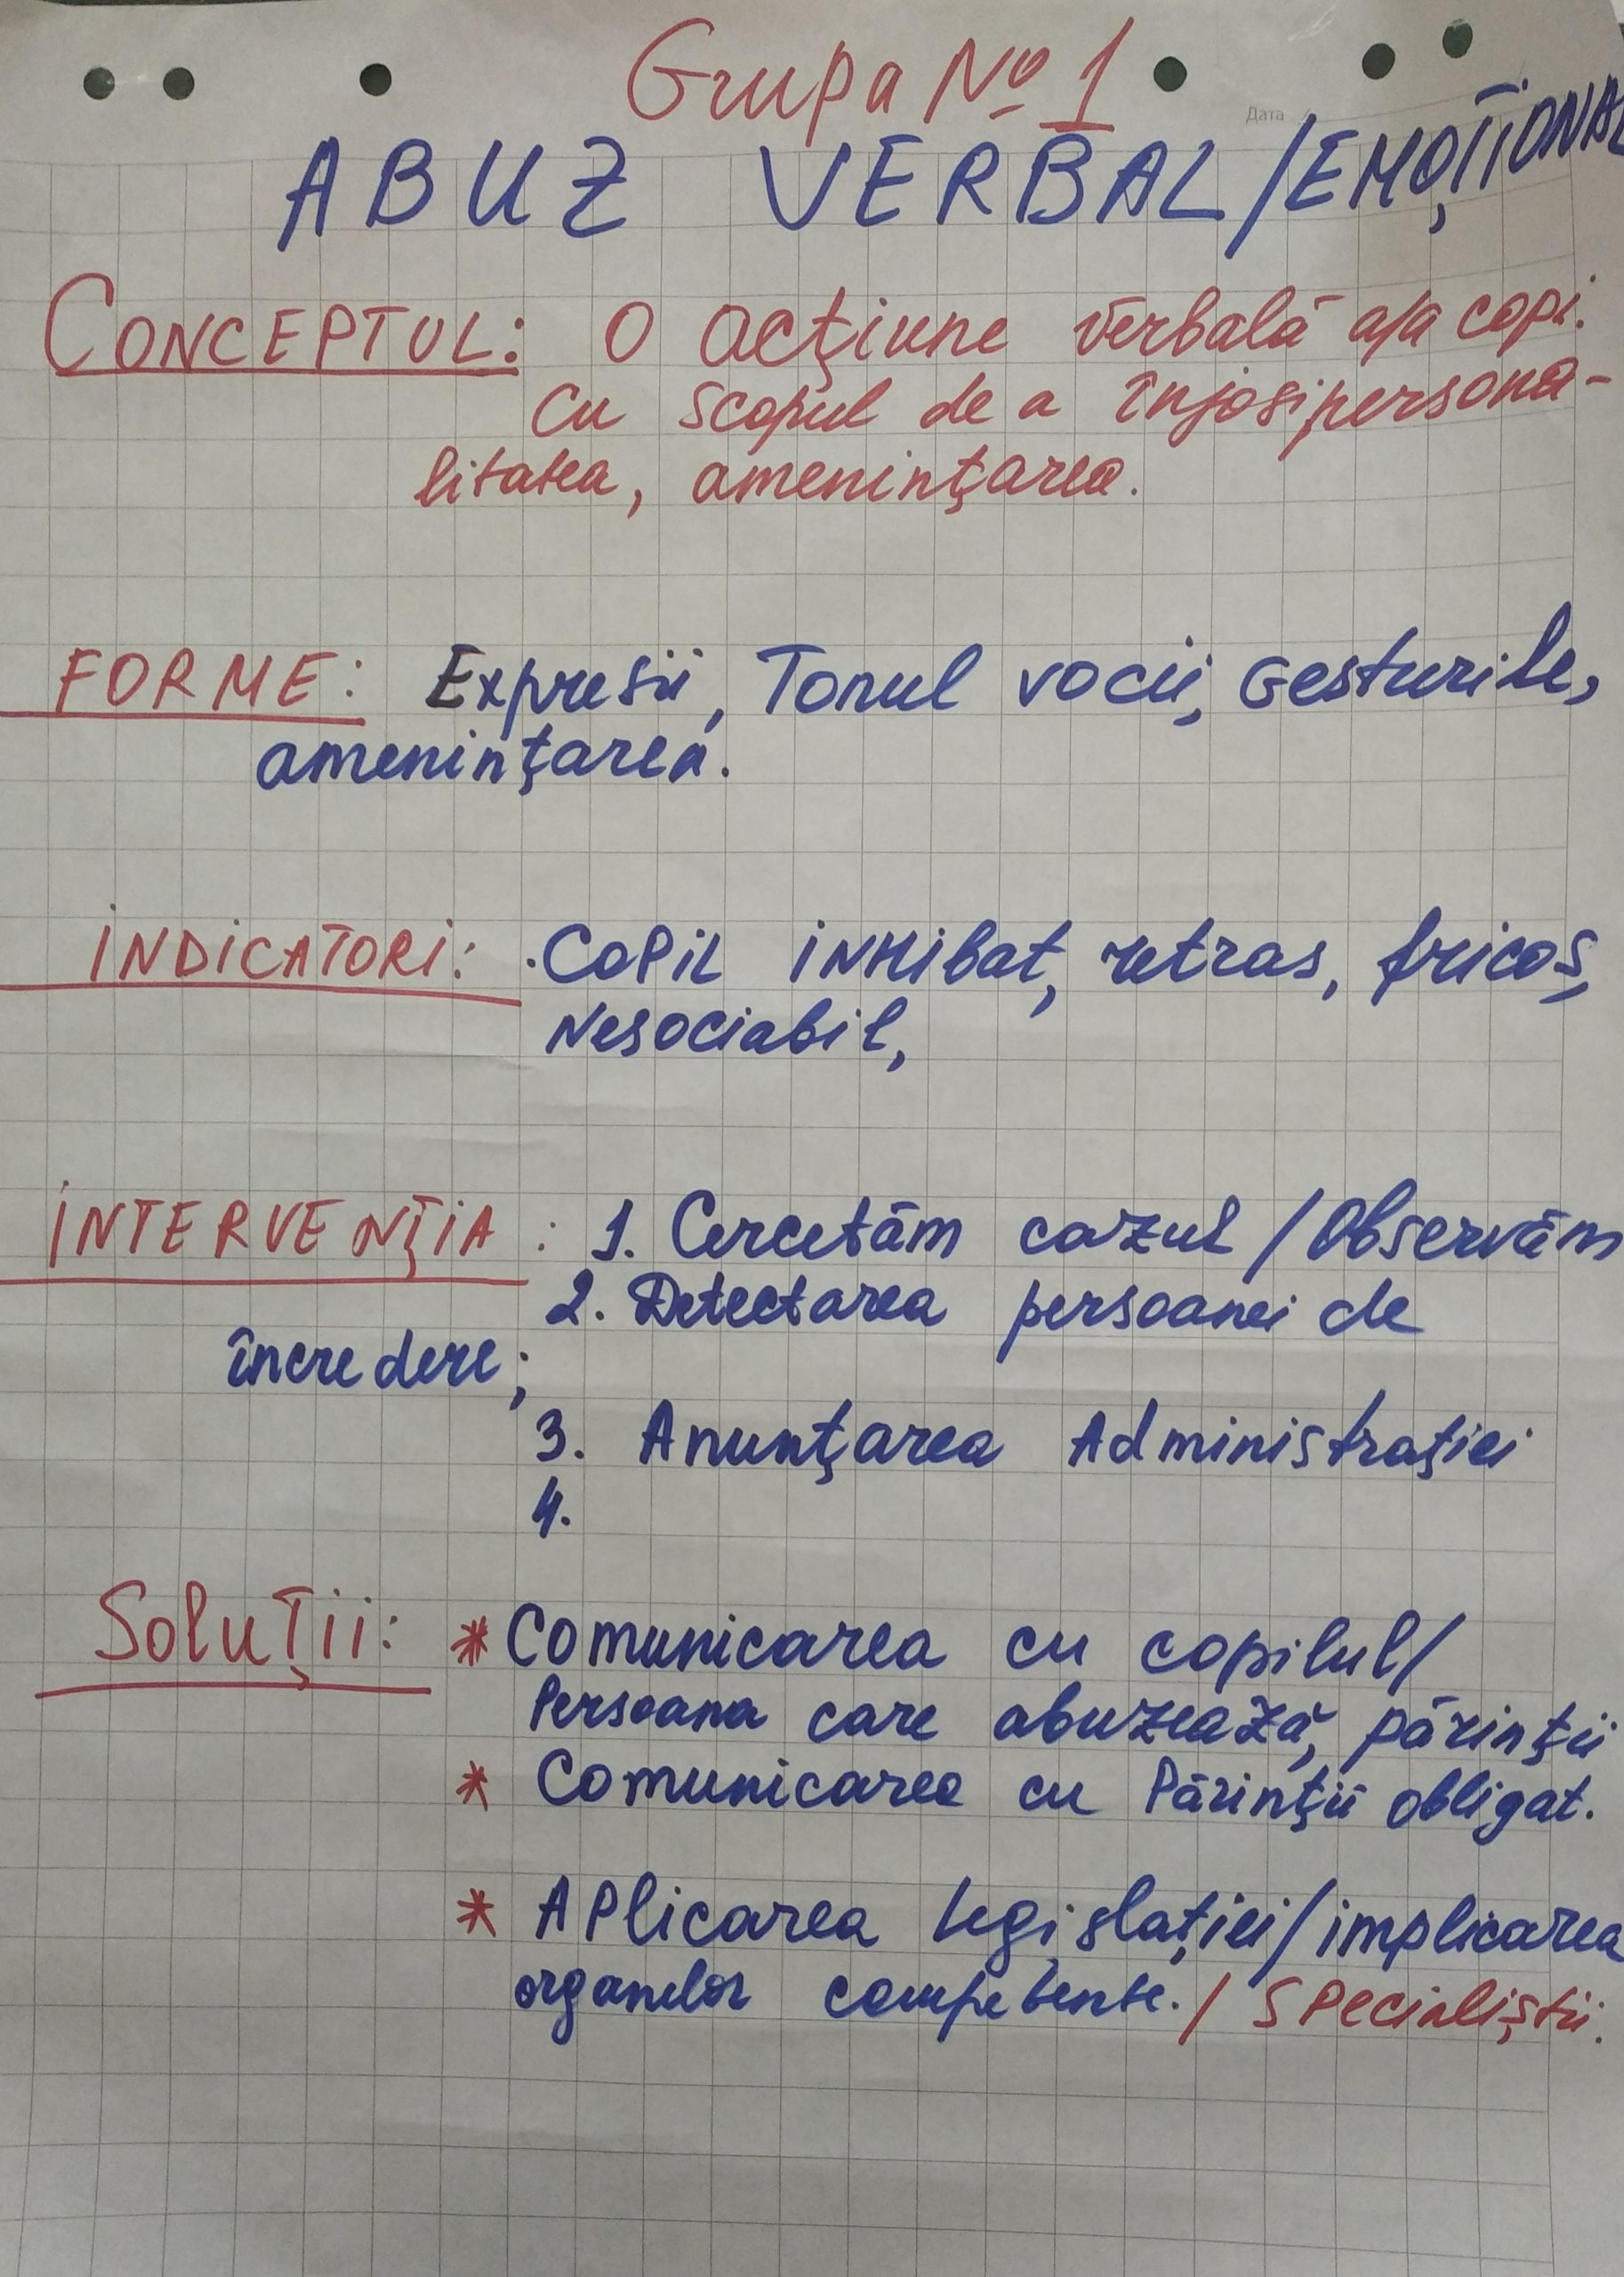 Grupa № 1
Дата
ABUZ VERBAL/EMOȚIONAL
CONCEPTUL: O acțiune verbală a/a copi.
cu scopul de a înjosi persona-
litatea, amenințarea.
FORME: Expresii, Tonul vocii, Gesturile,
amenințarea.
INDICATORI: · Copil inhibat, retras, fricos,
Nesociabil,
INTERVENȚIA : 1. Cercetăm cazul / Observăm
2. Detectarea persoanei de
încredere;
3. Anunțarea Administrației
4.
Soluții: * Comunicarea cu copilul/
Persoana care abuzează, părinții
* Comunicarea cu Părinții obligat.
* Aplicarea legislației/implicarea
organelor competente. / Specialiștii.